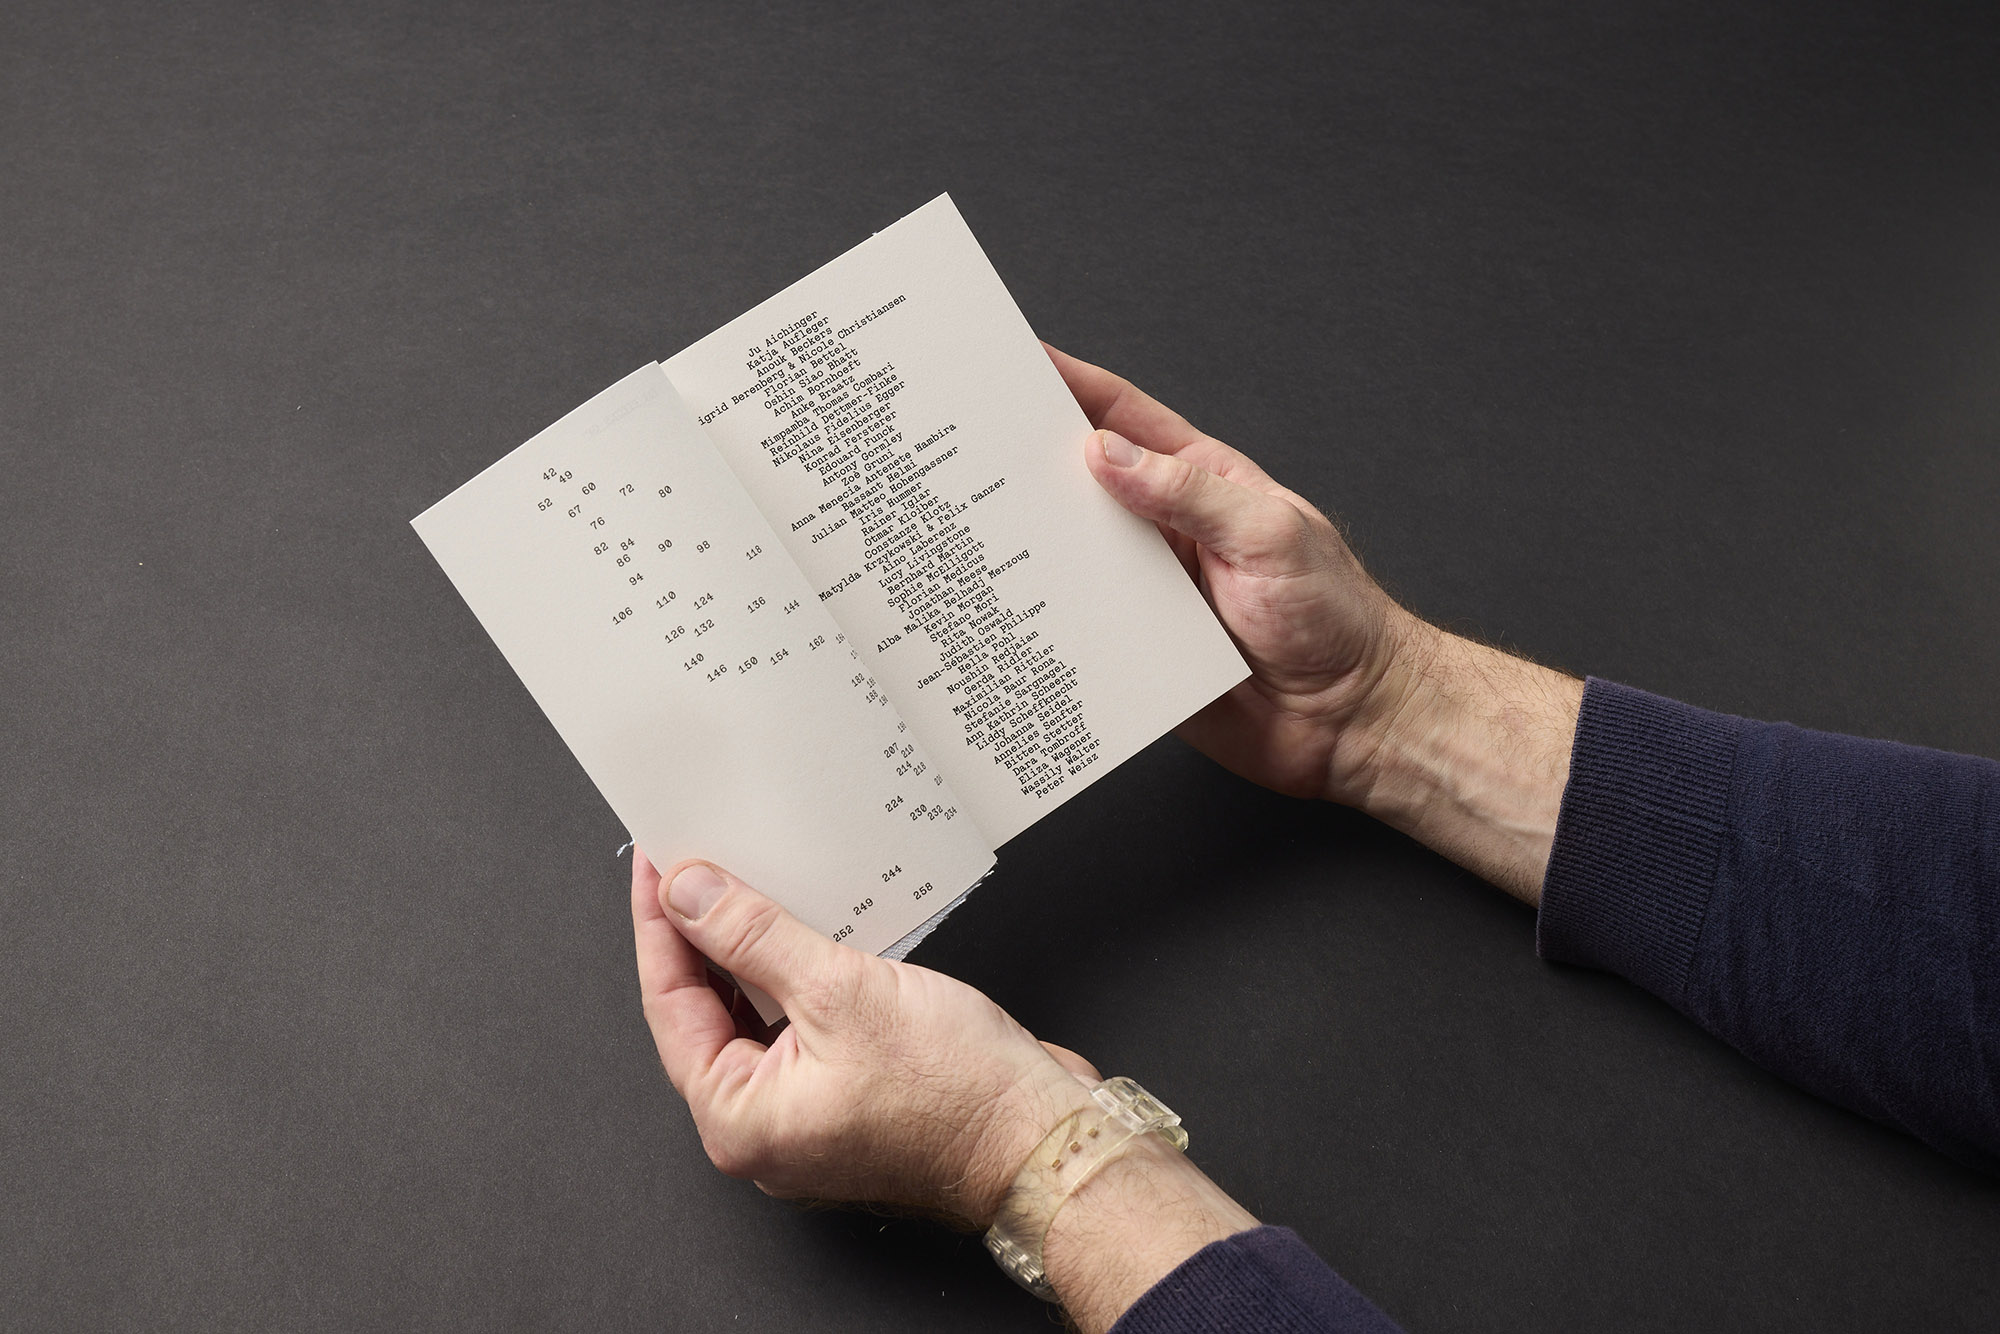 42
49
52 60 72 80
67
76
82 84 90 98 118
86
94
106 110 124 136 144
126 132
140
146 150 154 162
182
188
207 210
214 218
224
230 232 234
244
249 258
252
Ju Aichinger
Katja Aufleger
Anouk Beckers
igrid Berenberg & Nicole Christiansen
Florian Bettel
Oshin Siao Bhatt
Achim Bornhoeft
Anke Braatz
Mimpamba Thomas Combari
Reinhild Dettmer-Finke
Nikolaus Fidelius Egger
Nina Eisenberger
Konrad Fersterer
Edouard Funck
Antony Gormley
Zoé Gruni
Anna Menecia Antenete Hambira
Bassant Helmi
Julian Matteo Hohengassner
Iris Hummer
Rainer Iglar
Otmar Kloiber
Constanze Klotz
Matylda Krzykowski & Felix Ganzer
Aino Laberenz
Lucy Livingstone
Bernhard Martin
Sophie McElligott
Florian Medicus
Jonathan Meese
Alba Malika Belhadj Merzoug
Kevin Morgan
Stefano Mori
Rita Nowak
Judith Oswald
Jean-Sébastien Philippe
Hella Pohl
Noushin Redjaian
Gerda Ridler
Maximilian Rittler
Nicola Baur Rona
Stefanie Sargnagel
Ann Kathrin Scheerer
Liddy Scheffknecht
Johanna Seidel
Annelies Senfter
Bitten Stetter
Dara Tombroff
Eliza Wagener
Wassily Walter
Peter Weisz